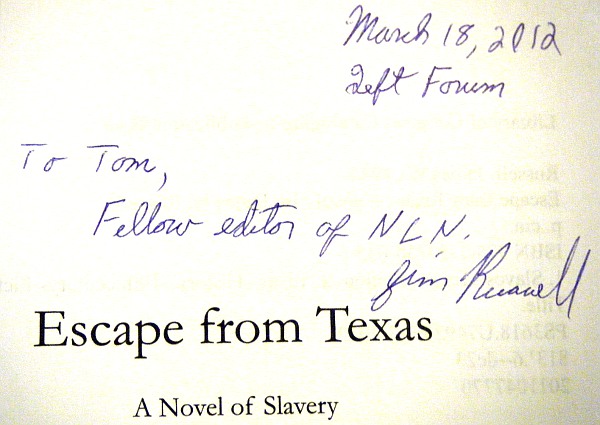 March 18, 2012
Left Forum
To Tom,
Fellow editor of NLN.
Jim Russell
Escape from Texas
A Novel of Slavery